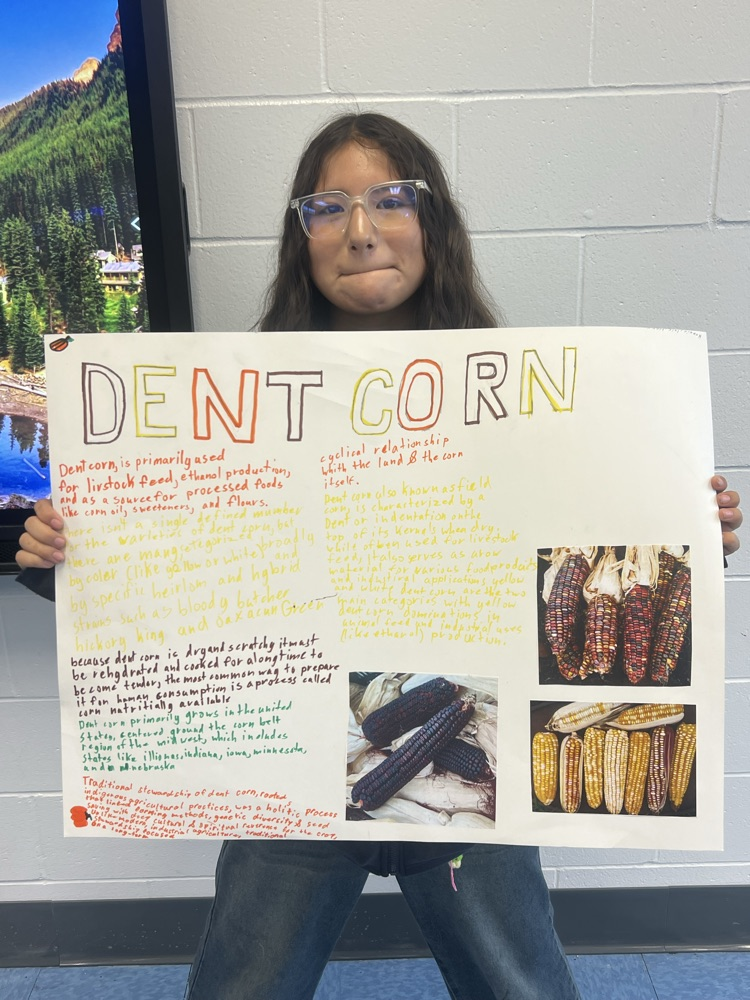 DENT CORN
Dent corn, is primarily used
for livstock feed, ethanol production,
and as a source for processed foods
like corn oil, sweeteners, and flours.
there isn't a single defined number
for the varieties of dent corn, but
there are many categorized broadly
by color (like yellow or white) and
by specific heirlom and hybrid
strains such as bloody butcher
hickory king and oaxacan Green
because dent corn is dry and scratchy it must
be rehydrated and cooked for a long time to
be come tendor, the most common way to prepare
it for human consumption is a process called
corn nutritially available
Dent corn primarily grows in the united
States, centered around the corn belt
region of the midwest, which includes
states like illionas, indiana, iowa, minnesota,
and nebraska
Traditional stewardship of dent corn, rooted
indigenous agricultural practices, was a holistic process
that linked farming methods, genetic diversity & seed
saving with deep cultural & spiritual reverence for the crop,
unlike modern, industrial agriculture, traditional
stewardship focused
on a long-term
cyclical relationship
whith the land & the corn
itself.
Dent corn also known as field
corn, is characterized by a
Dent or indentation on the
top of its kernels when dry.
while often used for livestock
feed, it also serves as a row
material for various food products
and industrial applications yellow
and white dent corn are the two
main categories with yellow
dent corn dominationg in
animal feed and industrial uses
(like ethanol) production.